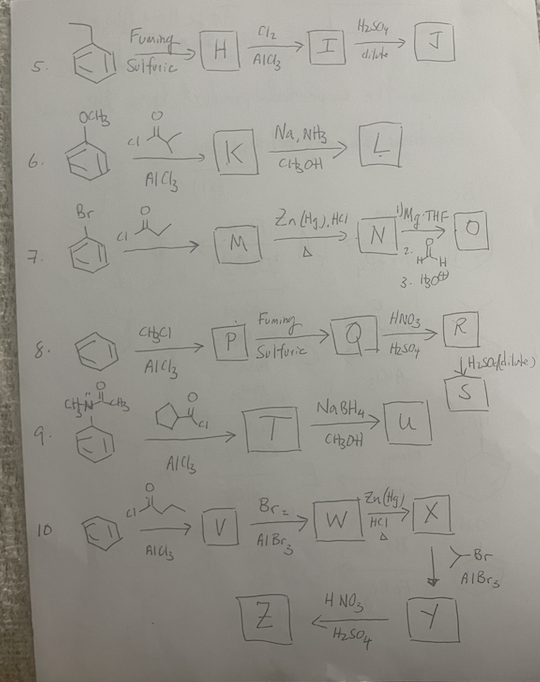 5. Fuming Sulfuric H Cl2 AlCl3 I H2SO4 dilute J
6. OCH3 O Cl AlCl3 K Na, NH3 CH3OH L
7. Br O Cl M Zn(Hg), HCl Δ N 1) Mg·THF 2. O H H 3. H3O⊕ O
8. CH3Cl AlCl3 P Fuming Sulfuric Q HNO3 H2SO4 R
H2SO4(dilute)
S
9. CH3 N O CH3 O Cl AlCl3 T NaBH4 CH3OH U
10 O Cl AlCl3 V Br2 AlBr3 W Zn(Hg) HCl Δ X
Br
AlBr3
Z HNO3 H2SO4 Y